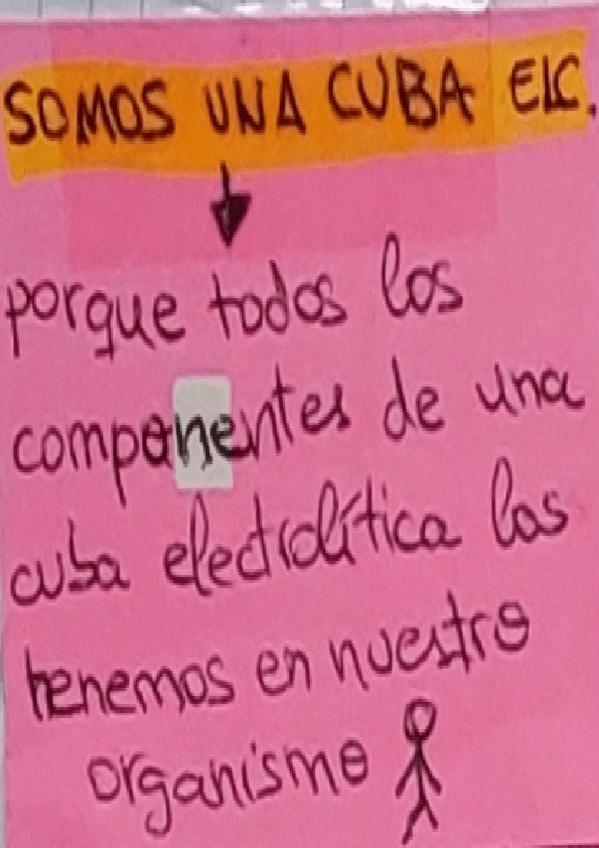 SOMOS UNA CUBA ELC.
porque todos los
componentes de una
cuba electrolítica los
tenemos en nuestro
organismo